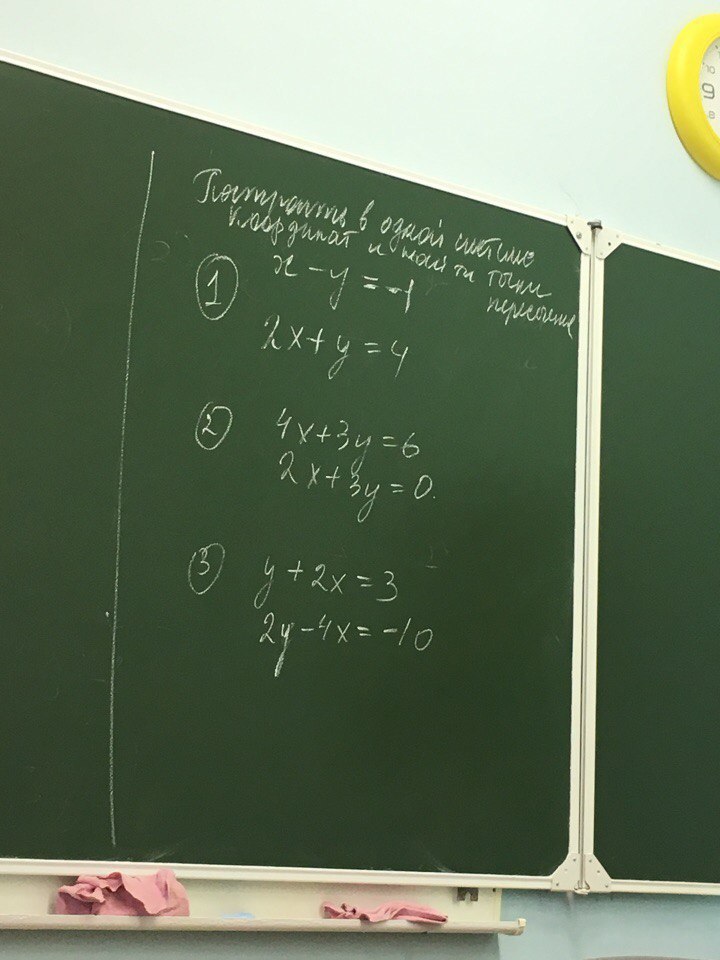 Построить в одной системе
координат и найти точки
пересечения
1 x - y = -1
2x + y = 4
2 4x + 3y = 6
2x + 3y = 0.
3 y + 2x = 3
2y - 4x = -10
10
9
8